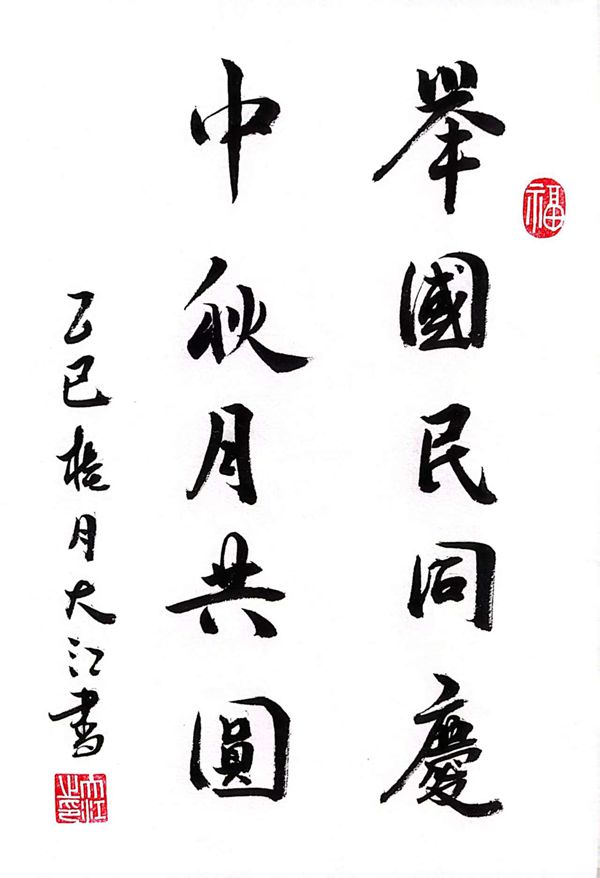 舉國民同慶
福
中秋月共圓
乙巳桂月大江書
大江之印